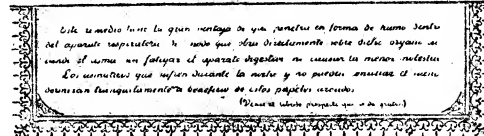 Este remedio tiene la gran ventaja de que penetra en forma de humo dentro
del aparato respiratorio de modo que obra directamente sobre dicho organo
el asma sin fatigar el aparato digestivo ni causar la menor molestia
Los asmáticos que sufren durante la noche y no pueden
dormiran tranquilamente a beneficio de estos papeles
(Véase el prospecto que se da gratis)